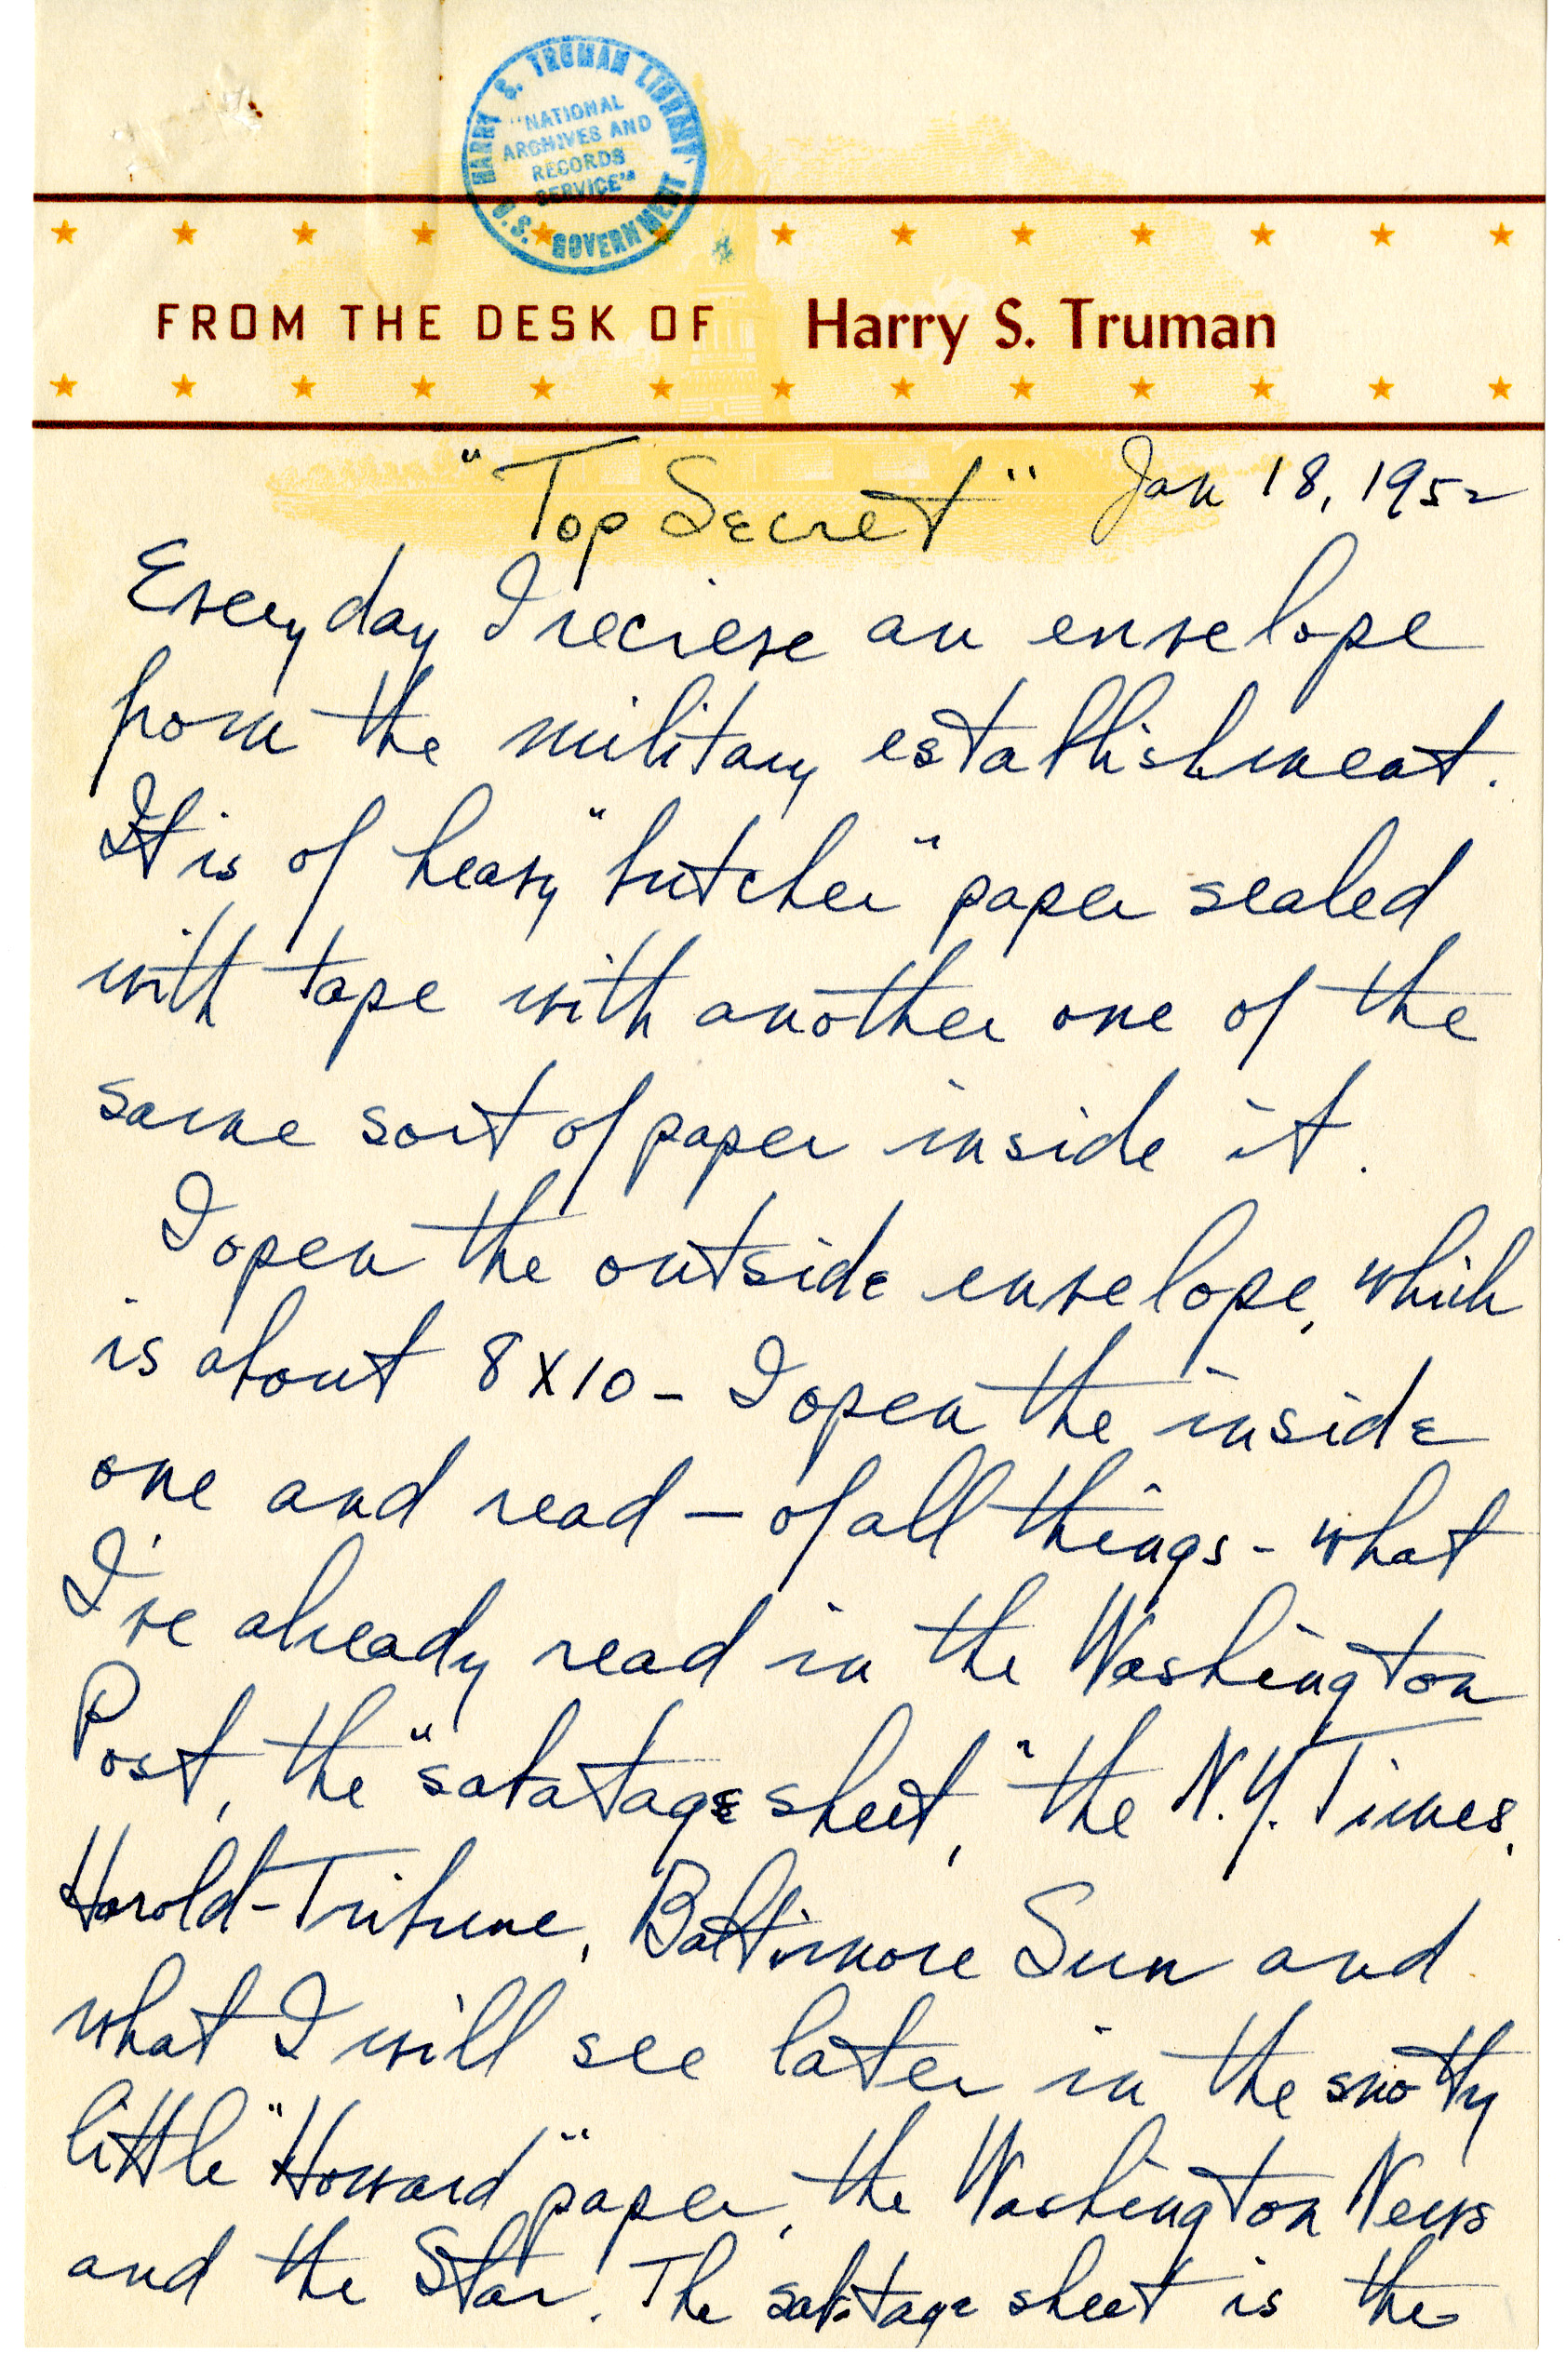 HARRY S. TRUMAN LIBRARY
"NATIONAL
ARCHIVES AND
RECORDS
SERVICE"
U.S. GOVERNMENT
FROM THE DESK OF Harry S. Truman
"Top Secret" Jan 18, 1952
Every day I recieve an envelope
from the military establishment.
It is of heavy "butcher" paper sealed
with tape with another one of the
same sort of paper inside it.
I open the outside envelope, which
is about 8X10 - I open the inside
one and read - of all things - what
I've already read in the Washington
Post, the "sabatage sheet," the N.Y. Times,
Harold-Tribune, Baltimore Sun and
what I will see later in the snotty
little "Howard" paper, the Washington News
and the Star. The sabitage sheet is the